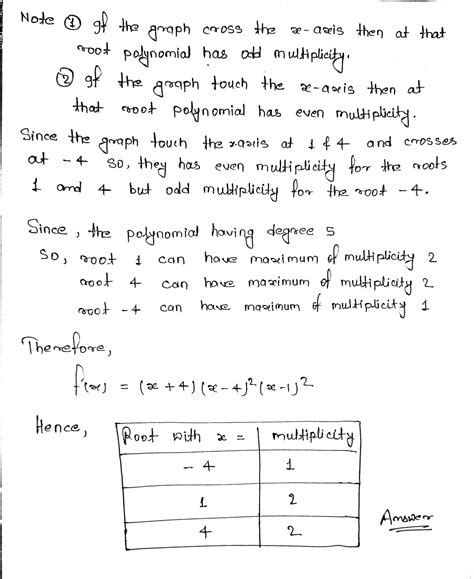 Note ① If the graph cross the x-axis then at that
root polynomial has odd multiplicity.
② If the graph touch the x-axis then at
that root polynomial has even multiplicity.
Since the graph touch the x-axis at 1 & 4 and crosses
at -4 so, they has even multiplicity for the roots
1 and 4 but odd multiplicity for the root -4.
Since, the polynomial having degree 5
So, root 1 can have maximum of multiplicity 2
root 4 can have maximum of multiplicity 2
root -4 can have maximum of multiplicity 1
Therefore,
f(x) = (x+4)(x-4)²(x-1)²
Hence,
Root with x = | multiplicity
-4 | 1
1 | 2
4 | 2
Answer